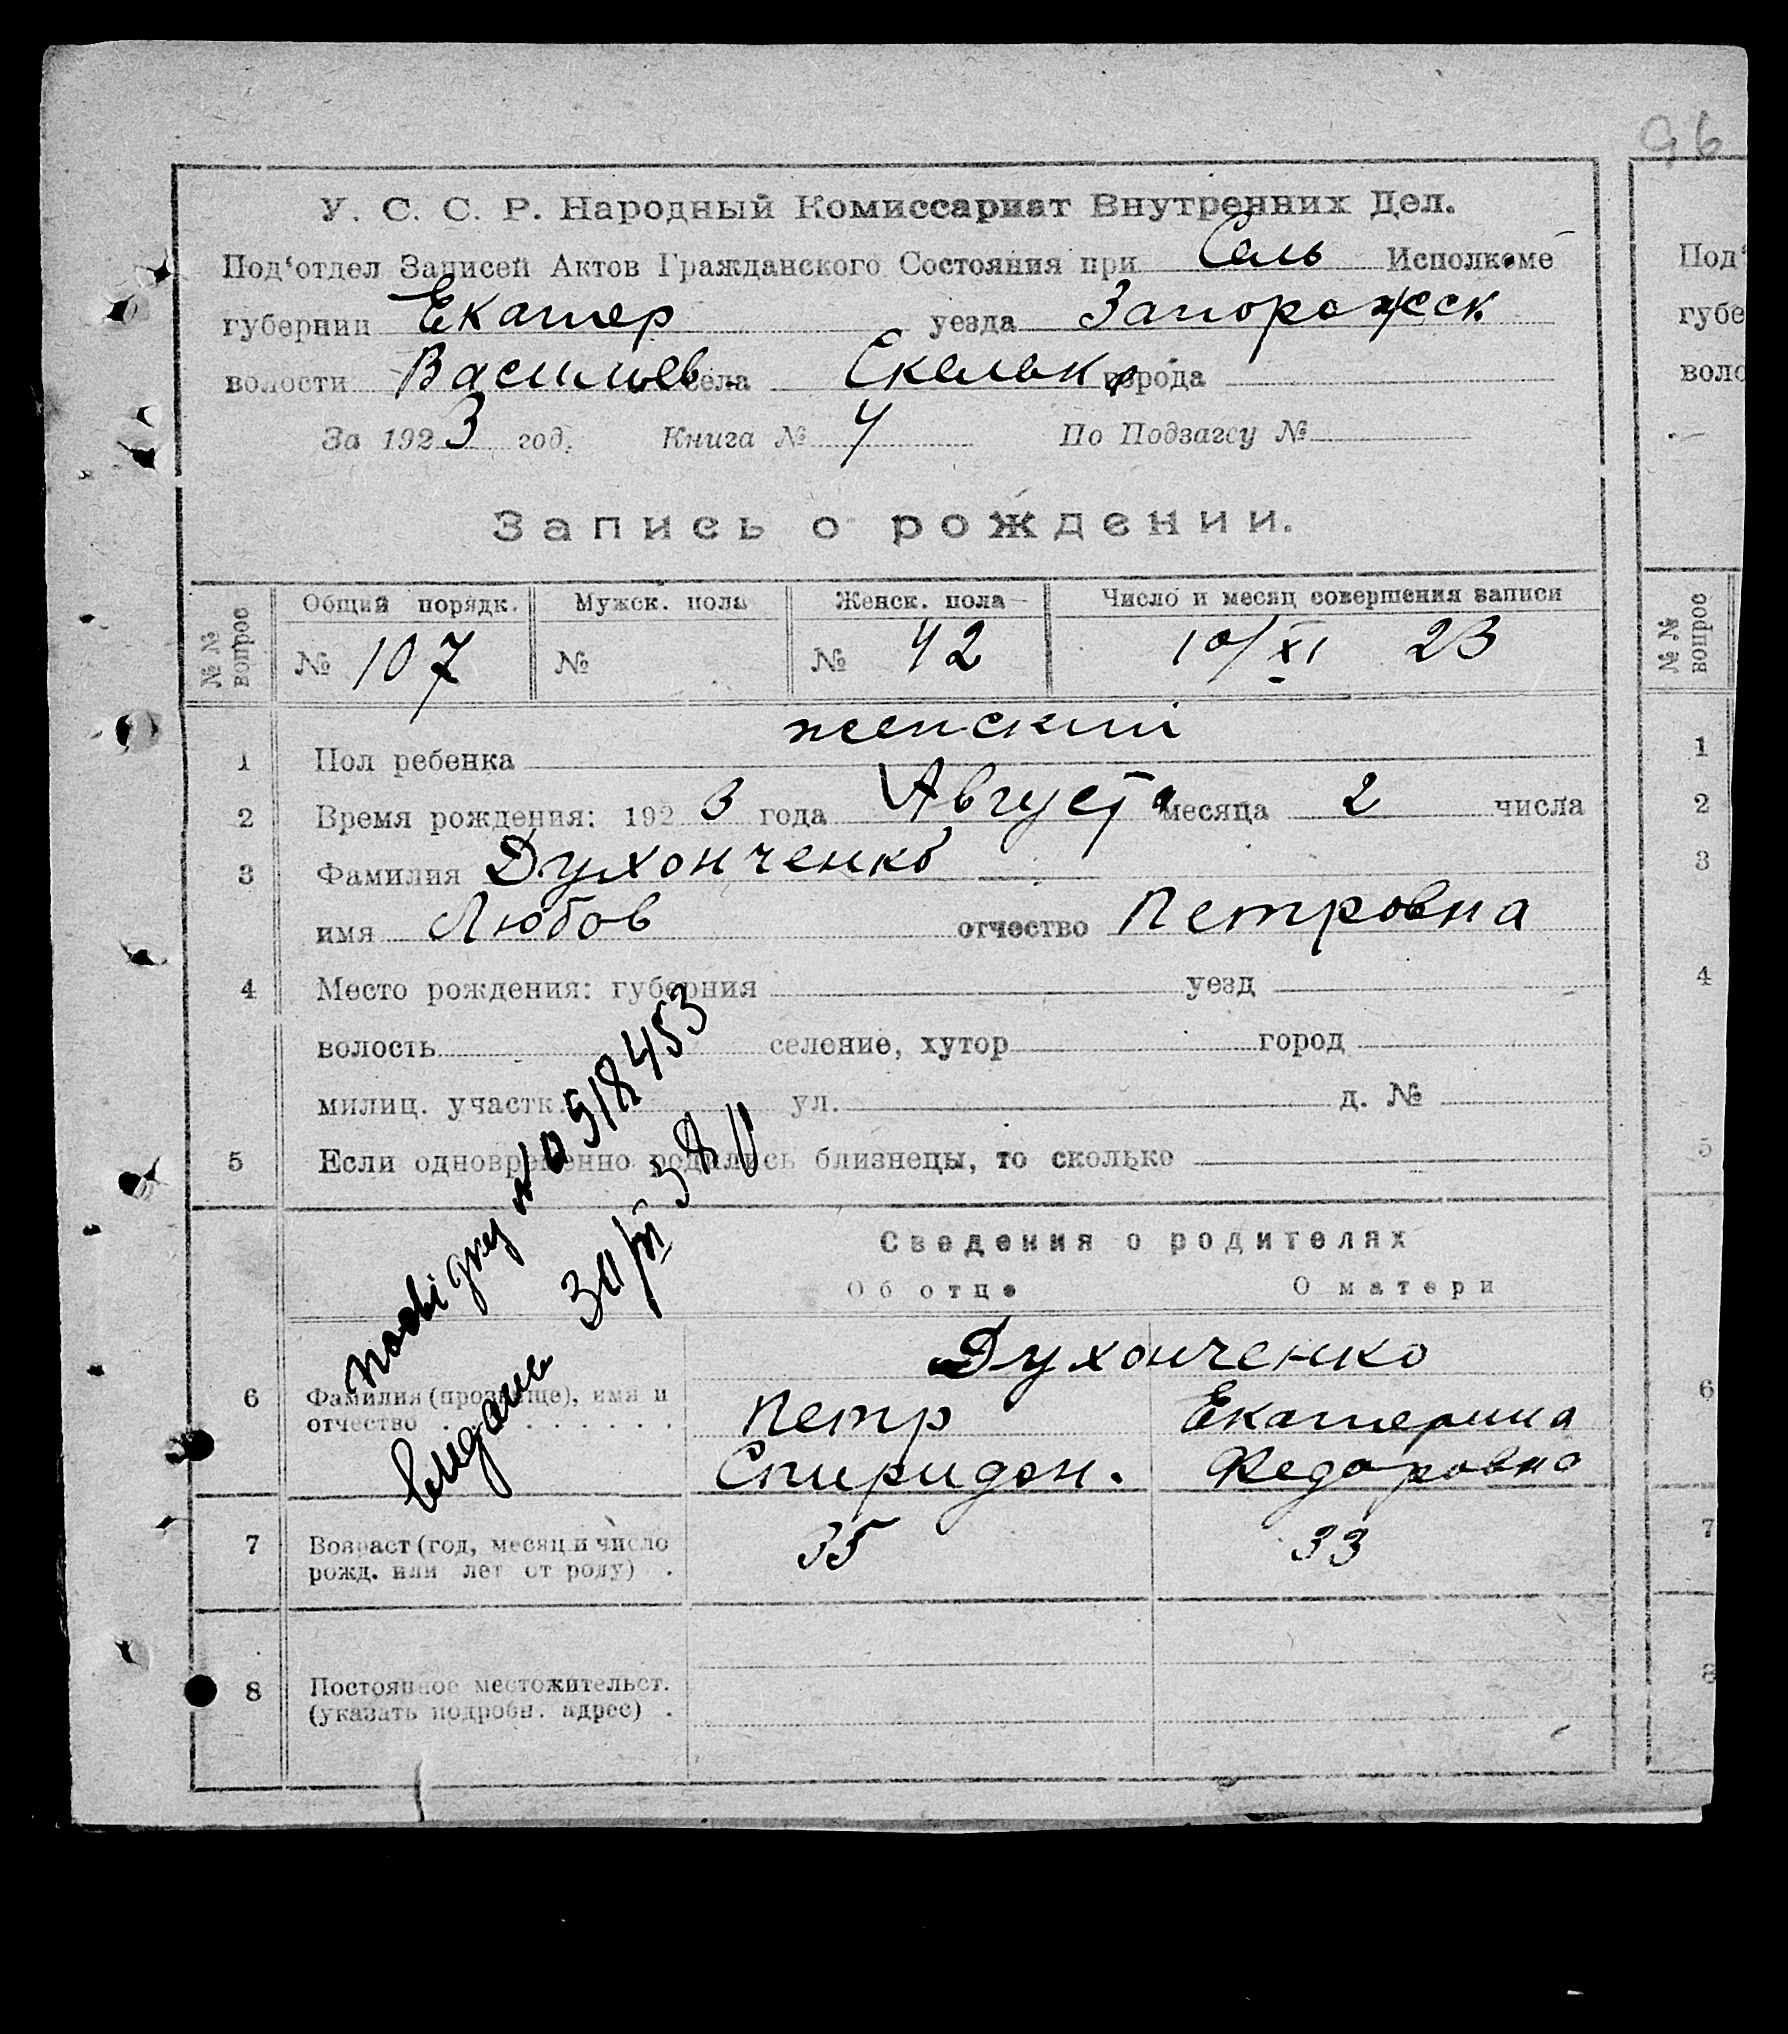 96
У. С. С. Р. Народный Комиссариат Внутренних Дел.
Под‘отдел Записей Актов Гражданского Состояния при Сель Исполкоме
губернии Екатер уезда Запорожск
волости Васильев. села Скельки города
За 1923 год. Книга № 4 По Подзагсу №
Запись о рождении.
№№ вопрос
Общий порядк. Мужск. пола Женск. пола Число и месяц совершения записи
№ 107 № № 42 10/XI 23
1 Пол ребенка женский
2 Время рождения: 1923 года Августа месяца 2 числа
3 Фамилия Духонченко
имя Любов отчество Петровна
4 Место рождения: губерния уезд
волость селение, хутор город
милиц. участк. ул. д. №
5 Если одновременно родились близнецы, то сколько
Сведения о родителях
Об отце О матери
Духонченко
6 Фамилия (прозвище), имя и Петр Екатерина
отчество Спиридон. Федоровна
7 Возраст (год, месяц и число 35 33
рожд. или лет от роду)
8 Постоянное местожительст.
(указать подробн. адрес)
518453
видане 30/III 38
Под‘
губе
воло
№№ вопрос
1
2
3
4
5
6
7
8